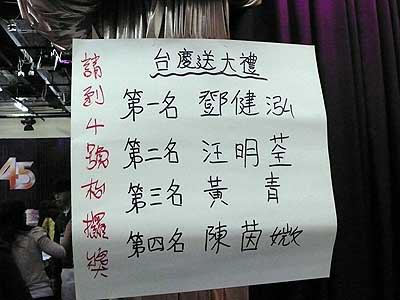 台慶送大禮
第一名 鄧健泓
第二名 汪明荃
第三名 黃青
第四名 陳茵媺
請到4號枱攞獎
45